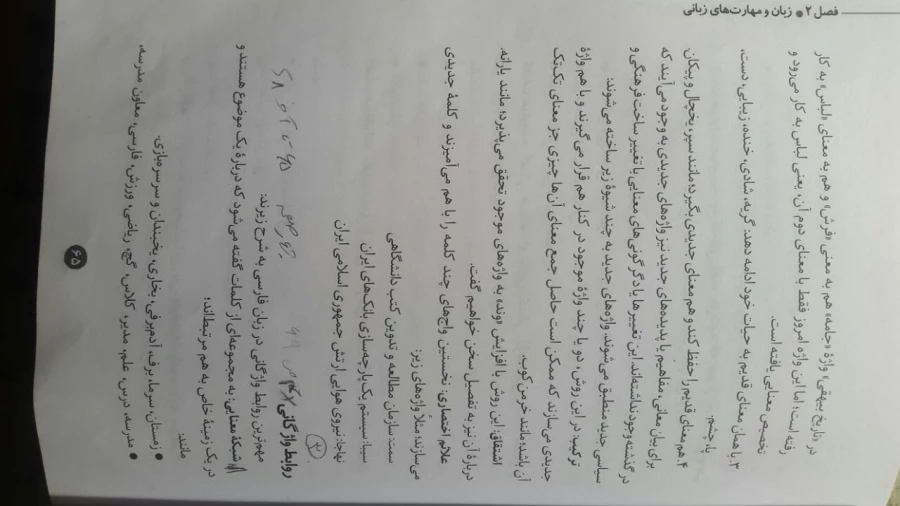 فصل ۲ ● زبان و مهارت‌های زبانی
در «تاریخ بیهقی» واژهٔ «جامه» هم به معنی «فرش» و هم به معنای «لباس» به کار
رفته است؛ اما این واژه امروز فقط با معنای دوم آن، یعنی لباس به کار می‌رود و
تخصیص معنایی یافته است.
۳. با همان معنای قدیم به حیات خود ادامه دهد: گریه، شادی، خنده، زیبایی، دست،
پا، چشم.
۴. هم معنای قدیم را حفظ کند و هم معنای جدیدی بگیرد؛ مانند سپر، یخچال و پیکان
برای بیان معانی، مفاهیم یا پدیده‌های جدید نیز واژه‌های جدیدی به وجود می‌آیند که
در گذشته وجود نداشته‌اند. این تغییرها یا دگرگونی‌های معنایی با تغییر ساخت فرهنگی و
سیاسی جدید منطبق می‌شوند. واژه‌های جدید به چند شیوهٔ زیر ساخته می‌شوند:
ترکیب: در این روش، دو یا چند واژهٔ موجود در کنار هم قرار می‌گیرند و با هم واژهٔ
جدیدی می‌سازند که ممکن است حاصل جمع معنای آن‌ها چیزی جز معنای تک‌تک
آن باشد؛ مانند خرمن‌کوب.
اشتقاق: این روش با افزایش «وند» به واژه‌های موجود تحقق می‌پذیرد؛ مانند یارانه.
درباره آن نیز به تفصیل سخن خواهیم گفت.
علائم اختصاری: نخستین واج‌های چند کلمه را با هم می‌آمیزند و کلمهٔ جدیدی
می‌سازند؛ مثلاً واژه‌های زیر:
سمت: سازمان مطالعه و تدوین کتب دانشگاهی
سیبا: سیستم یکپارچه‌سازی بانک‌های ایران
نهاجا: نیروی هوایی ارتش جمهوری اسلامی ایران
۲
روابط واژگانی
مهم‌ترین روابط واژگانی در زبان فارسی به شرح زیرند:
شبکهٔ معنایی: به مجموعه‌ای از کلمات گفته می‌شود که دربارهٔ یک موضوع هستند و
در یک زمینهٔ خاص به هم مرتبط‌اند؛
مانند:
● زمستان، سرما، برف، آدم‌برفی، بخاری، یخبندان و سرسره‌بازی.
● مدرسه، درس، علم، مدیر، کلاس، گچ، ریاضی، ورزش، فارسی، معاون مدرسه،
۶۵